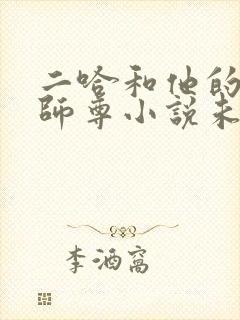 二哈和他的
師尊小說未
李酒窩